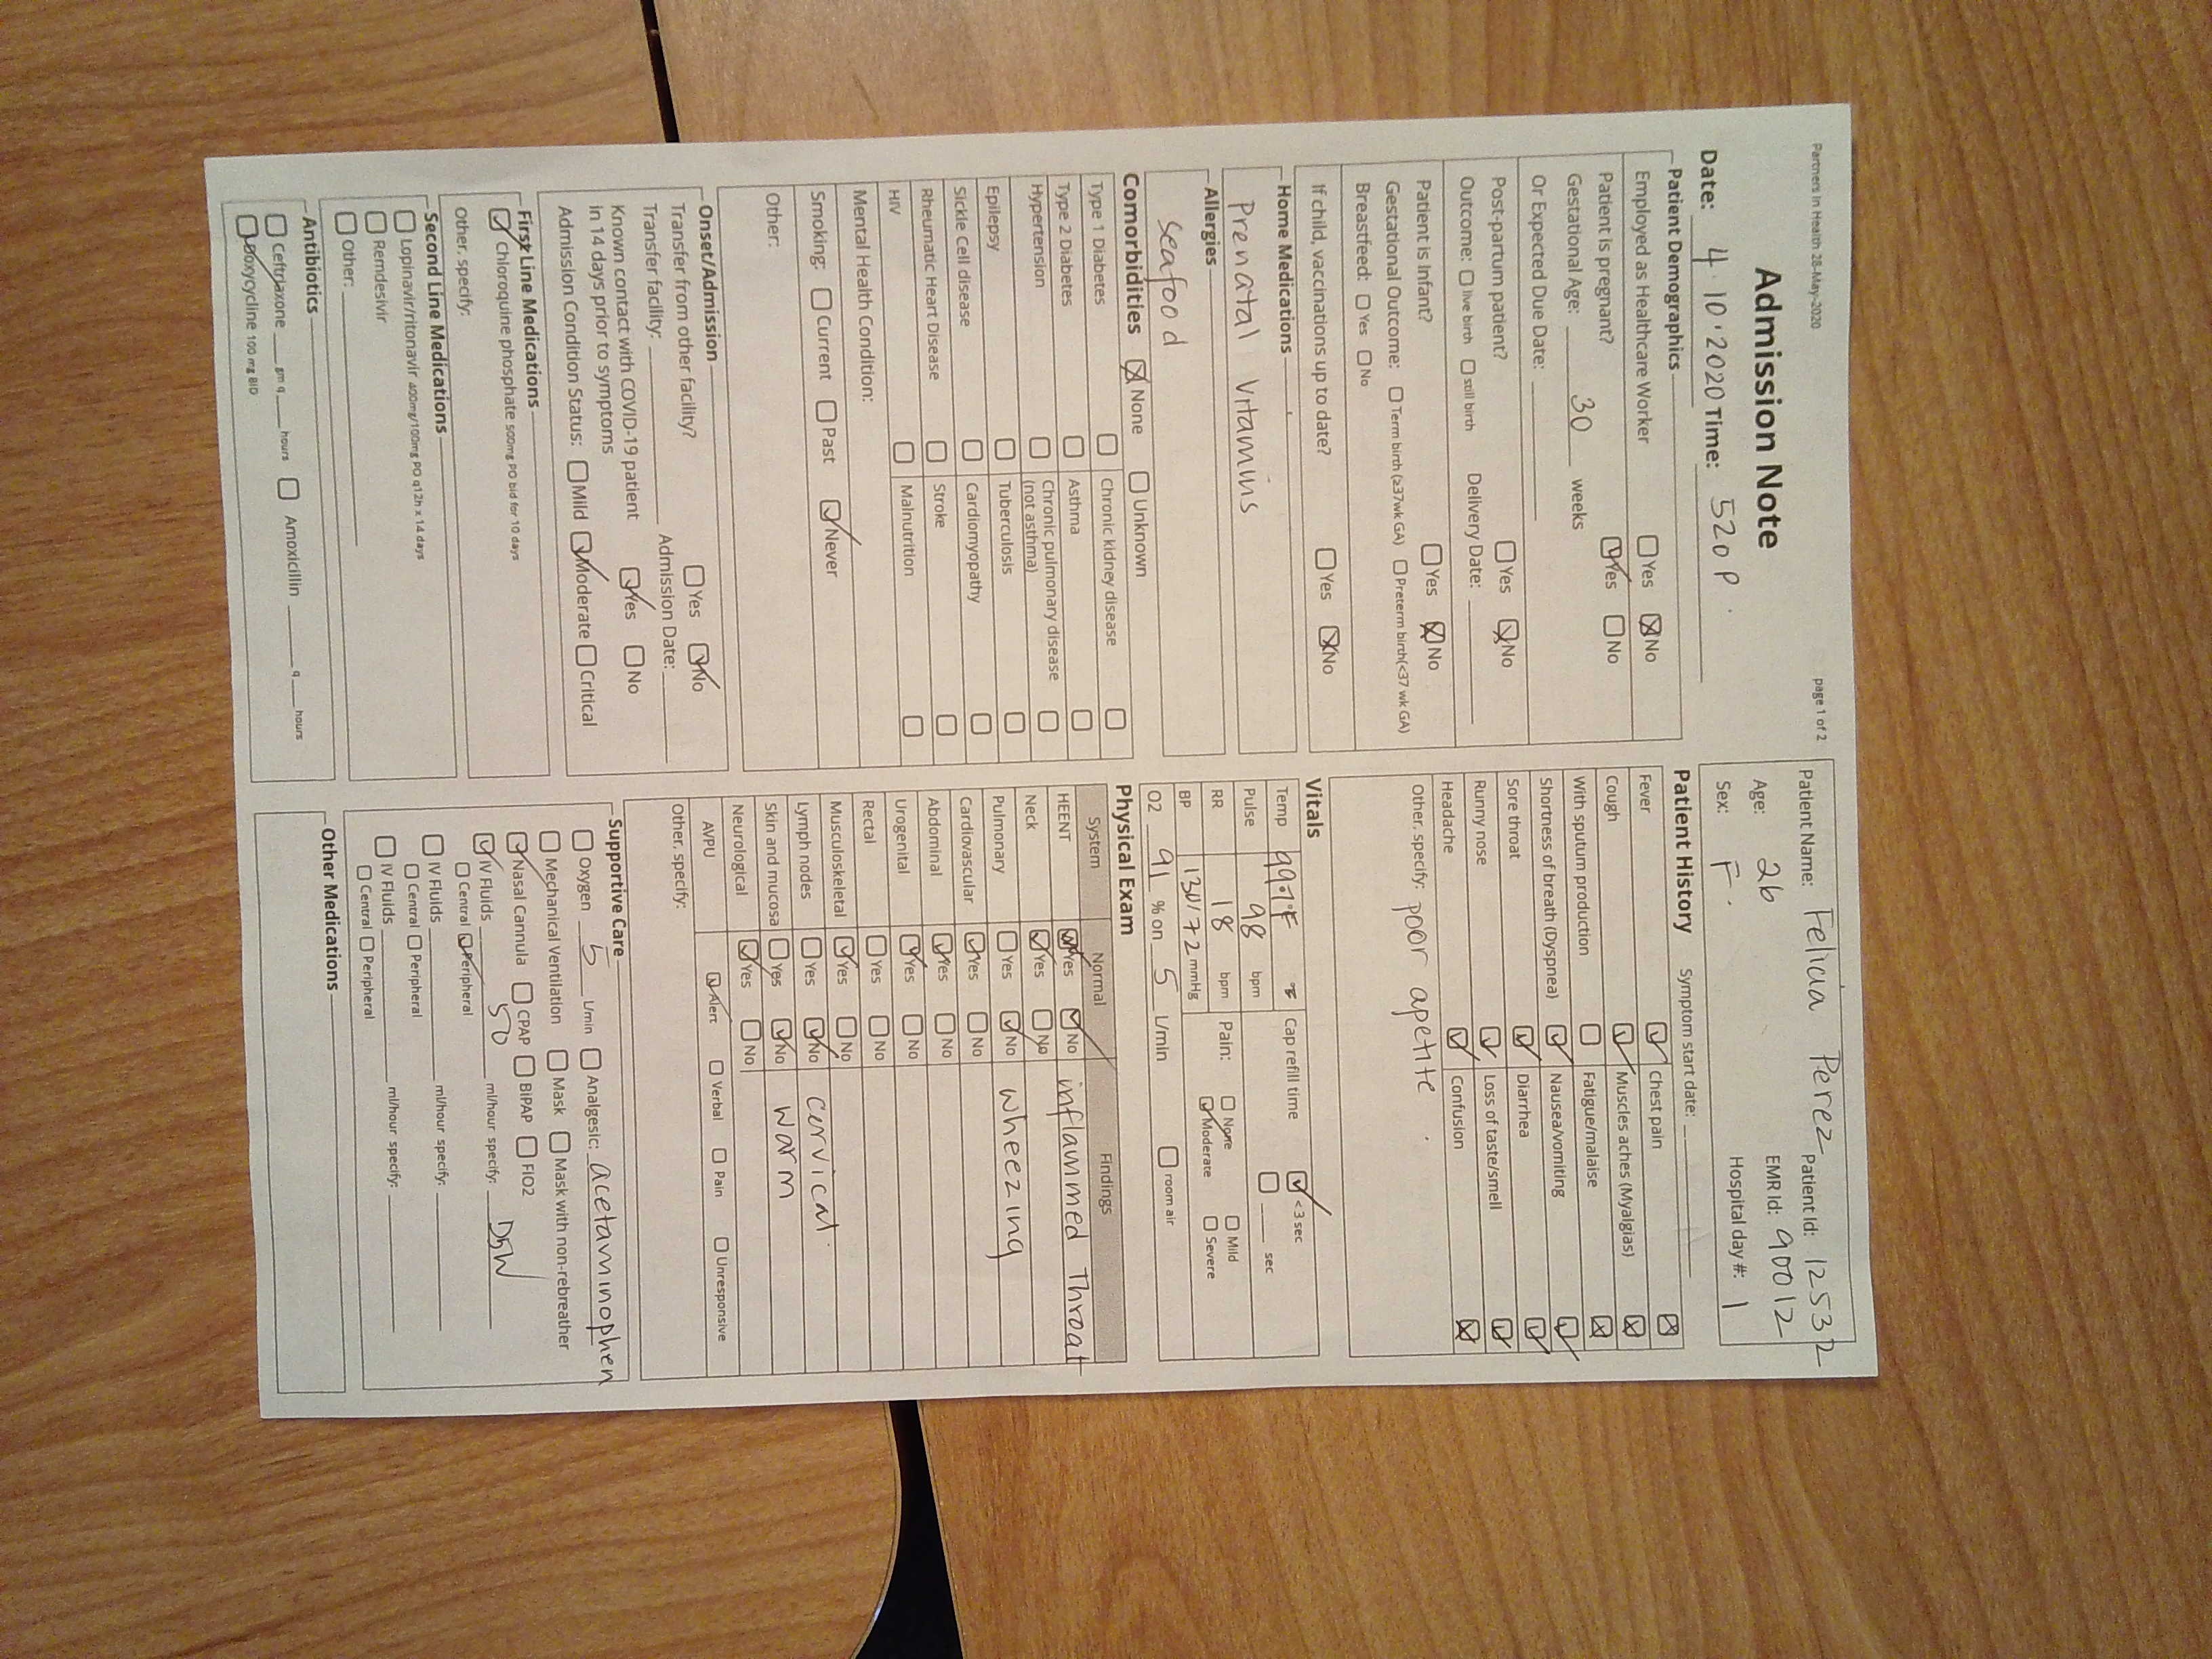 Partners In Health 28-May-2020
page 1 of 2
Admission Note
Date: 4.10.2020 Time: 520 P.
Patient Demographics
Employed as Healthcare Worker Yes No
Patient is pregnant? Yes No
Gestational Age: 30 weeks
Or Expected Due Date:
Post-partum patient? Yes No
Outcome: live birth still birth Delivery Date:
Patient is Infant? Yes No
Gestational Outcome: Term birth (≥37wk GA) Preterm birth(<37 wk GA)
Breastfeed: Yes No
If child, vaccinations up to date? Yes No
Home Medications
Prenatal Vitamins
Allergies
Seafood
Comorbidities None Unknown
Type 1 Diabetes Chronic kidney disease
Type 2 Diabetes Asthma
Hypertension Chronic pulmonary disease (not asthma)
Epilepsy Tuberculosis
Sickle Cell disease Cardiomyopathy
Rheumatic Heart Disease Stroke
HIV Malnutrition
Mental Health Condition:
Smoking: Current Past Never
Other:
Onset/Admission
Transfer from other facility? Yes No
Transfer facility: Admission Date:
Known contact with COVID-19 patient Yes No
in 14 days prior to symptoms
Admission Condition Status: Mild Moderate Critical
First Line Medications
Chloroquine phosphate 500mg PO bid for 10 days
Other, specify:
Second Line Medications
Lopinavir/ritonavir 400mg/100mg PO q12h x 14 days
Remdesivir
Other:
Antibiotics
Ceftriaxone gm q hours Amoxicillin q hours
Doxycycline 100 mg BID
Patient Name: Felicia Perez Patient Id: 12532
Age: 26 EMR Id: 90012
Sex: F. Hospital day #: 1
Patient History Symptom start date:
Fever Chest pain
Cough Muscles aches (Myalgias)
With sputum production Fatigue/malaise
Shortness of breath (Dyspnea) Nausea/vomiting
Sore throat Diarrhea
Runny nose Loss of taste/smell
Headache Confusion
Other, specify: poor apetite.
Vitals
Temp 99.1°F °F Cap refill time <3 sec
Pulse 98 bpm sec
RR 18 bpm Pain: None Mild
BP 130/72 mmHg Moderate Severe
O2 91 % on 5 L/min room air
Physical Exam
System Normal Findings
HEENT Yes No inflammed Throat
Neck Yes No
Pulmonary Yes No wheezing
Cardiovascular Yes No
Abdominal Yes No
Urogenital Yes No
Rectal Yes No
Musculoskeletal Yes No
Lymph nodes Yes No cervical.
Skin and mucosa Yes No warm
Neurological Yes No
AVPU Alert Verbal Pain Unresponsive
Other, specify:
Supportive Care
Oxygen 5 L/min Analgesic: acetaminophen
Mechanical Ventilation Mask Mask with non-rebreather
Nasal Cannula CPAP BiPAP FiO2
IV Fluids 50 ml/hour specify: D5W
Central Peripheral
IV Fluids ml/hour specify:
Central Peripheral
IV Fluids ml/hour specify:
Central Peripheral
Other Medications